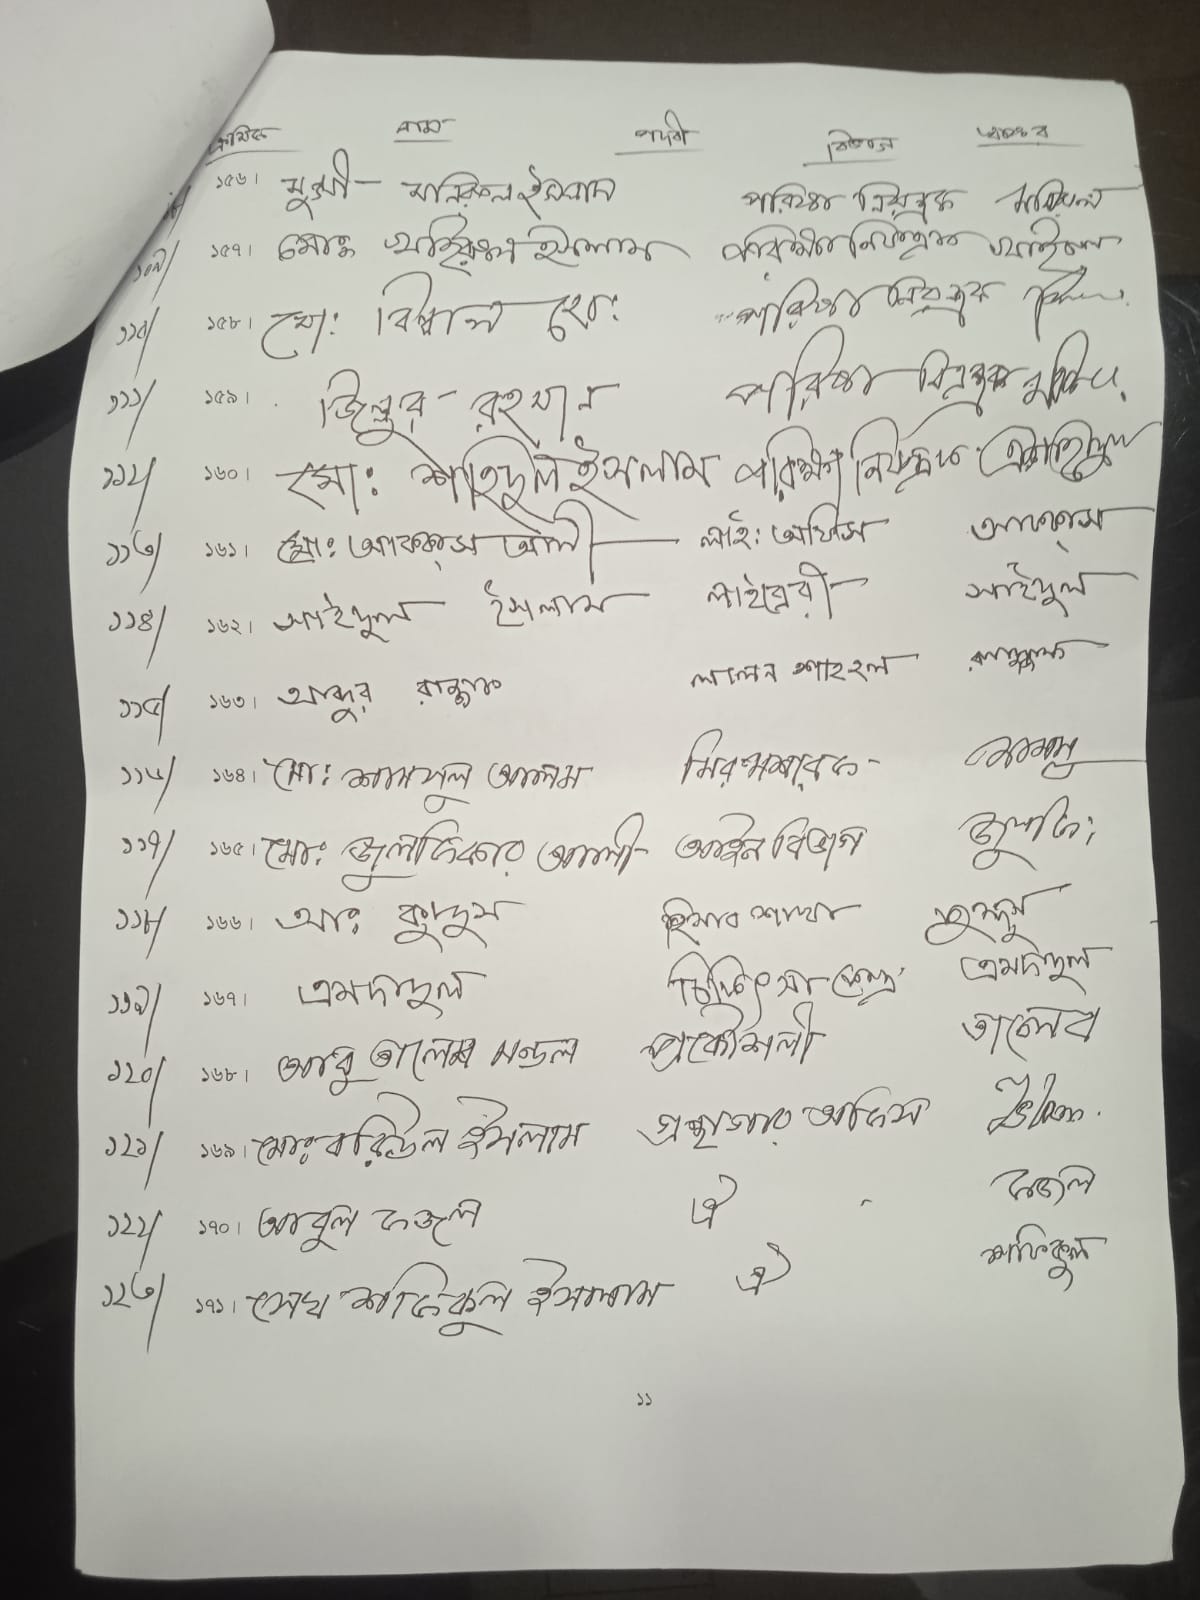 ক্রমিক নাম পদবী বিভাগ স্বাক্ষর
১৫৬। মুন্সী মনিরুল ইসলাম পরিক্ষা নিয়ন্ত্রক
১০৯/ ১৫৭। মোঃ জহিরুল ইসলাম পরিক্ষা নিয়ন্ত্রক
১১০/ ১৫৮। মো: বিল্লাল হো: পরিক্ষা নিয়ন্ত্রক
১১১/ ১৫৯। জিল্লুর রহমান পরিক্ষা নিয়ন্ত্রক
১১২/ ১৬০। মো: শহিদুল ইসলাম পরিক্ষা নিয়ন্ত্রক
১১৩/ ১৬১। মো: আককাস আলী লাই: অফিস আককাস
১১৪/ ১৬২। সাইদুল ইসলাম লাইব্রেরী সাইদুল
১১৫/ ১৬৩। আব্দুর রাজ্জাক লালন শাহ হল রাজ্জাক
১১৬/ ১৬৪। মো: শামসুল আলম মির মশাররফ
১১৭/ ১৬৫। মো: জুলফিকার আলী আইন বিভাগ জুলফি:
১১৮/ ১৬৬। আঃ কুদ্দুস হিসাব শাখা কুদ্দুস
১১৯/ ১৬৭। এমদাদুল চিকিৎসা কেন্দ্র এমদাদুল
১২০/ ১৬৮। আবু তালেব মন্ডল প্রকৌশলী তালেব
১২১/ ১৬৯। মোঃ রবিউল ইসলাম গ্রন্থাগার অফিস
১২২/ ১৭০। আবুল ফজল ঐ ফজল
১২৩/ ১৭১। সেখ শফিকুল ইসলাম ঐ শফিকুল
১১